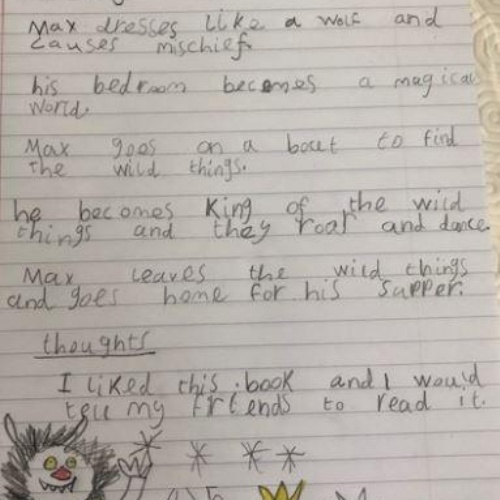 Max dresses like a wolf and
causes mischief.
his bedroom becomes a magical
world.
Max goes on a bout to find
the wild things.
he becomes King of the wild
things and they roar and dance.
Max leaves the wild things
and goes home for his supper.
thoughts
I liked this book and I would
tell my friends to read it.